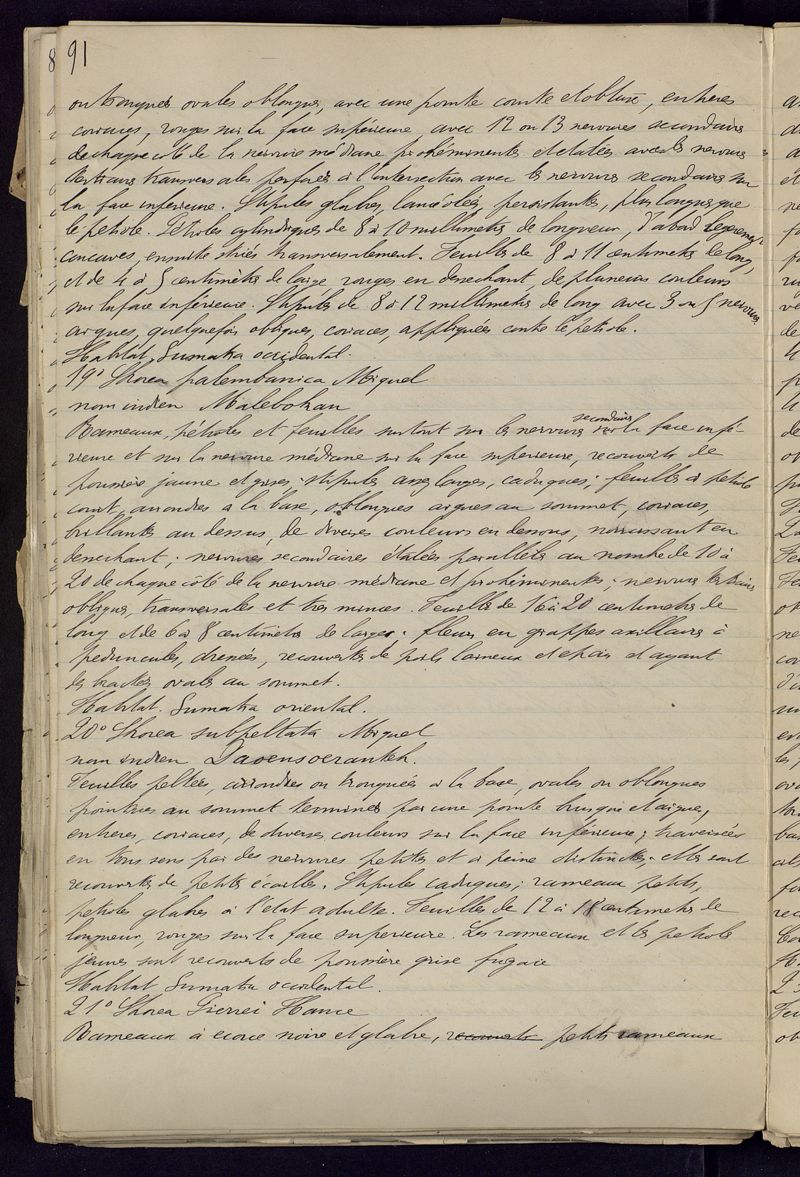 91
ou tronquées ovales oblongues, avec une pointe courte et obtuse, entières
coriaces, rouges sur la face supérieure, avec 12 ou 13 nervures secondaires
de chaque côté de la nervure médiane prohéminentes et étalées avec les nervures
tertiaires transversales perforées à l'intersection avec les nervures secondaires sur
la face inférieure. Stipules glabres, lanceolées, persistantes, plus longues que
le petiole. Pétioles cylindriques de 8 à 10 millimetres de longueur, d'abord
concaves, ensuite striés transversalement. Feuilles de 8 à 11 centimetres de long,
et de 4 à 5 centimètres de large, rouges en dessechant, de plusieurs couleurs
sur la face inférieure. Stipules de 8 à 12 millimetres de long avec 3 ou 5 nervures
aigues, quelquefois obliques, coriaces, appliquées contre le petiole.
Habitat. Sumatra occidental.
19º Shorea palembanica Miquel
nom indien Malebohau
Rameaux, pétioles et feuilles surtout sur les nervures secondaires sur la face infé-
rieure et sur la nervure médiane sur la face superieure, recouverts de
poussière jaune et grise; stipules assez larges, caduques; feuilles à petiole
court, arrondies à la base, oblongues aigues au sommet, coriaces,
brillantes au dessus, de diverses couleurs en dessous, noircissant en
dessechant; nervures secondaires étalées parallèles au nombre de 10 à
20 de chaque côté de la nervure médiane et prohéminentes; nervures tertiaires
obliques, transversales et tres minces. Feuilles de 16 à 20 centimetres de
long et de 6 à 8 centimètres de large; fleurs en grappes axillaires à
peduncules, dressées, recouvertes de poils laineux et epais et ayant
des bractées ovales au sommet.
Habitat. Sumatra oriental.
20º Shorea subpeltata Miquel
nom indien Daoensoerantek.
Feuilles peltées, arrondies ou tronquées à la base, ovales ou oblongues
pointues au sommet terminées par une pointe brusque et aigue,
entieres, coriaces, de diverses couleurs sur la face inférieure; traversées
en tous sens par des nervures petites et à peine distinctes; elles sont
recouvertes de petites écailles. Stipules caduques; rameaux petits,
petioles glabres à l'état adulte. Feuilles de 12 à 18 centimetres de
longueur, rouges sur la face superieure. Les rameaux et les petioles
jeunes sont recouverts de poussière grise fugace
Habitat Sumatra occidental.
21º Shorea Pierrei Hance
Rameaux à ecorce noire et glabre, recouverts petits rameaux